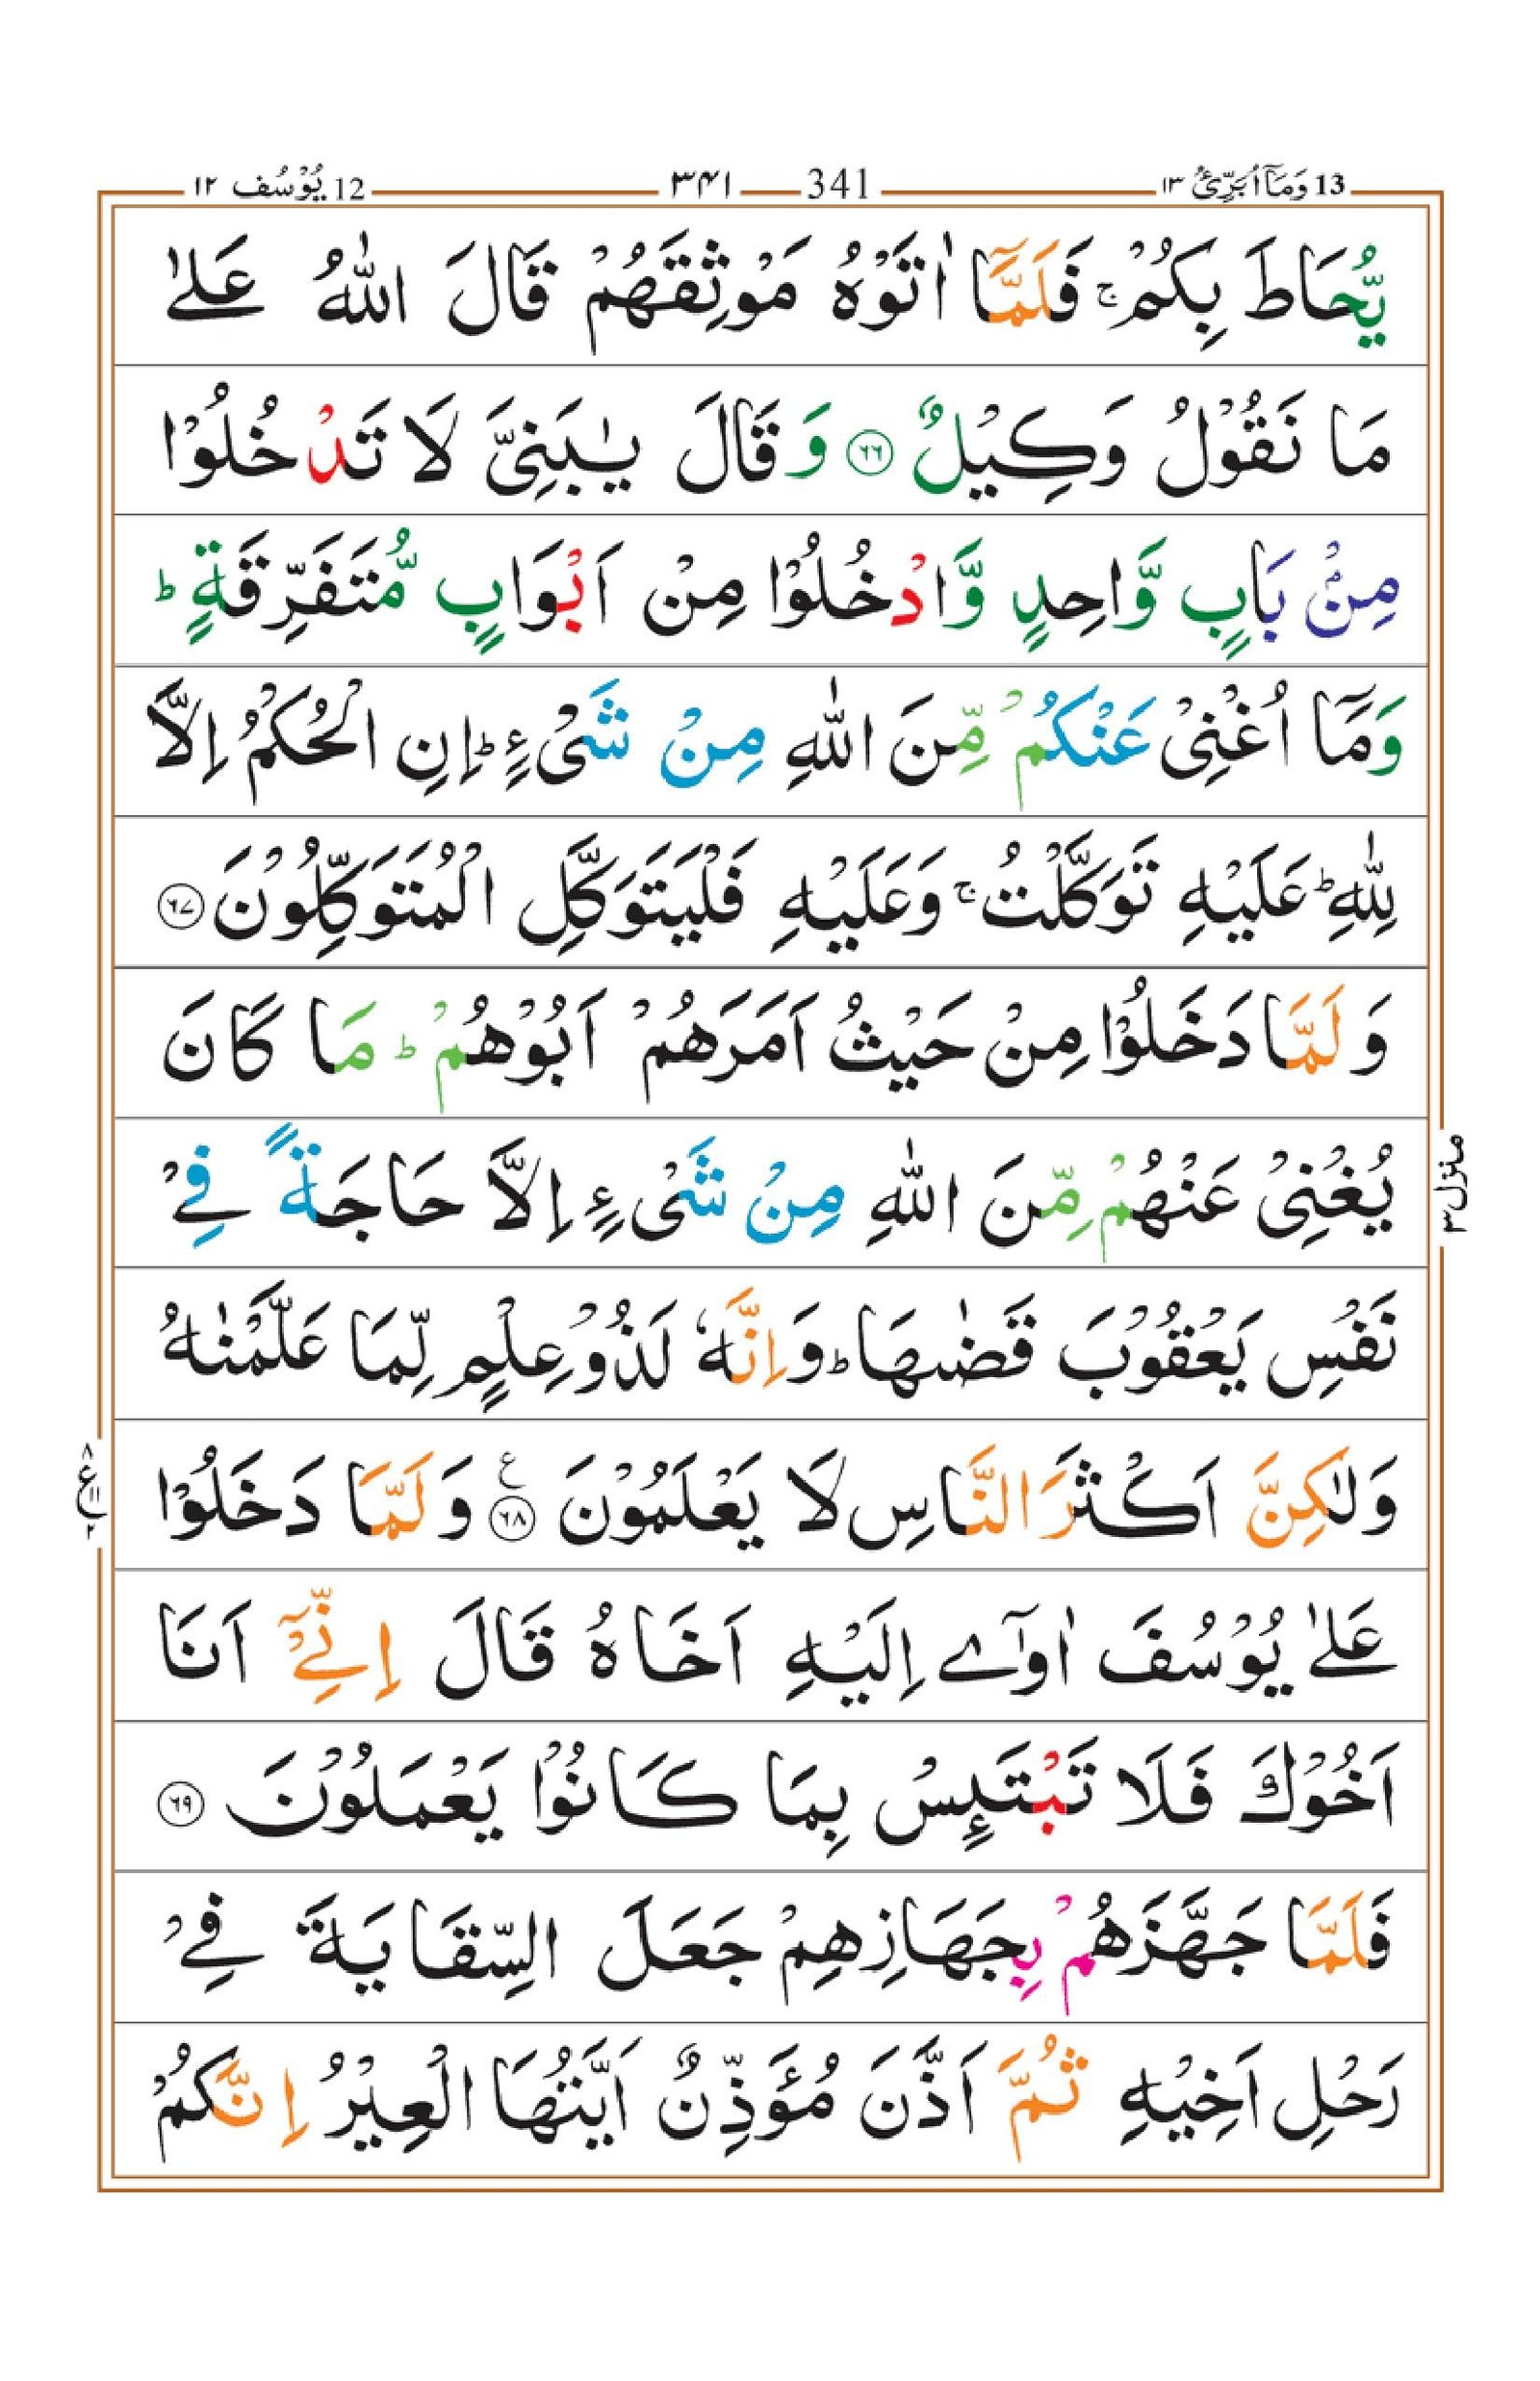 13 وَمَآ اُبَرِّئُ ١٣ 341 ٣٤١ 12 يُوْسُف ١٢
يُّحَاطَ بِكُمْ ۚ فَلَمَّآ اٰتَوْهُ مَوْثِقَهُمْ قَالَ اللّٰهُ عَلٰى
مَا نَقُوْلُ وَكِيْلٌ ﴿٦٦﴾ وَ قَالَ يٰبَنِىَّ لَا تَدْخُلُوْا
مِنْۢ بَابٍ وَّاحِدٍ وَّادْخُلُوْا مِنْ اَبْوَابٍ مُّتَفَرِّقَةٍ ؕ
وَمَآ اُغْنِىْ عَنْكُمْ مِّنَ اللّٰهِ مِنْ شَىْءٍ ؕ اِنِ الْحُكْمُ اِلَّا
لِلّٰهِ ؕ عَلَيْهِ تَوَكَّلْتُ ۚ وَعَلَيْهِ فَلْيَتَوَكَّلِ الْمُتَوَكِّلُوْنَ ﴿٦٧﴾
وَ لَمَّا دَخَلُوْا مِنْ حَيْثُ اَمَرَهُمْ اَبُوْهُمْ ؕ مَا كَانَ
يُغْنِىْ عَنْهُمْ مِّنَ اللّٰهِ مِنْ شَىْءٍ اِلَّا حَاجَةً فِىْ
نَفْسِ يَعْقُوْبَ قَضٰٮهَا ؕ وَاِنَّهٗ لَذُوْ عِلْمٍ لِّمَا عَلَّمْنٰهُ
وَلٰكِنَّ اَكْثَرَ النَّاسِ لَا يَعْلَمُوْنَ ﴿٦٨﴾ ع وَ لَمَّا دَخَلُوْا
عَلٰى يُوْسُفَ اٰوٰٓى اِلَيْهِ اَخَاهُ قَالَ اِنِّىْۤ اَنَا
اَخُوْكَ فَلَا تَبْتَٮِٕسْ بِمَا كَانُوْا يَعْمَلُوْنَ ﴿٦٩﴾
فَلَمَّا جَهَّزَهُمْ بِجَهَازِهِمْ جَعَلَ السِّقَايَةَ فِىْ
رَحْلِ اَخِيْهِ ثُمَّ اَذَّنَ مُؤَذِّنٌ اَيَّتُهَا الْعِيْرُ اِنَّكُمْ
منزل ٣
٨ ع ١١ ٢